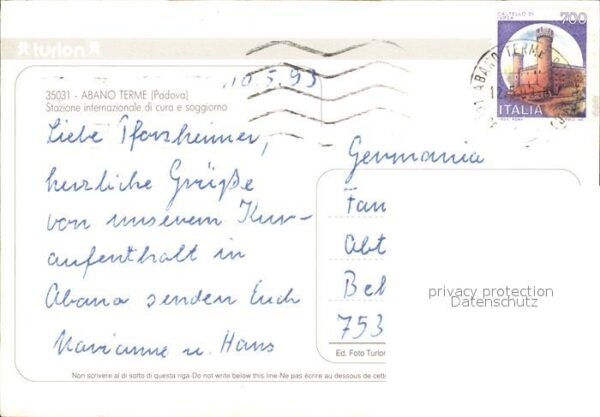 turlon
CASTELLO DI IVREA
700
ITALIA
ABANO TERME
10.5.93
35031 - ABANO TERME (Padova)
Stazione internazionale di cura e soggiorno
Liebe Pforzheimer,
herzliche Grüße
von unserem Kur-
aufenthalt in
Abano senden Euch
Marianne u. Hans
Germania
Fam
Abt
Bel
753
privacy protection
Datenschutz
Ed. Foto Turlon
Non scrivere al di sotto di questa riga-Do not write below this line-Ne pas écrire au dessous de cette